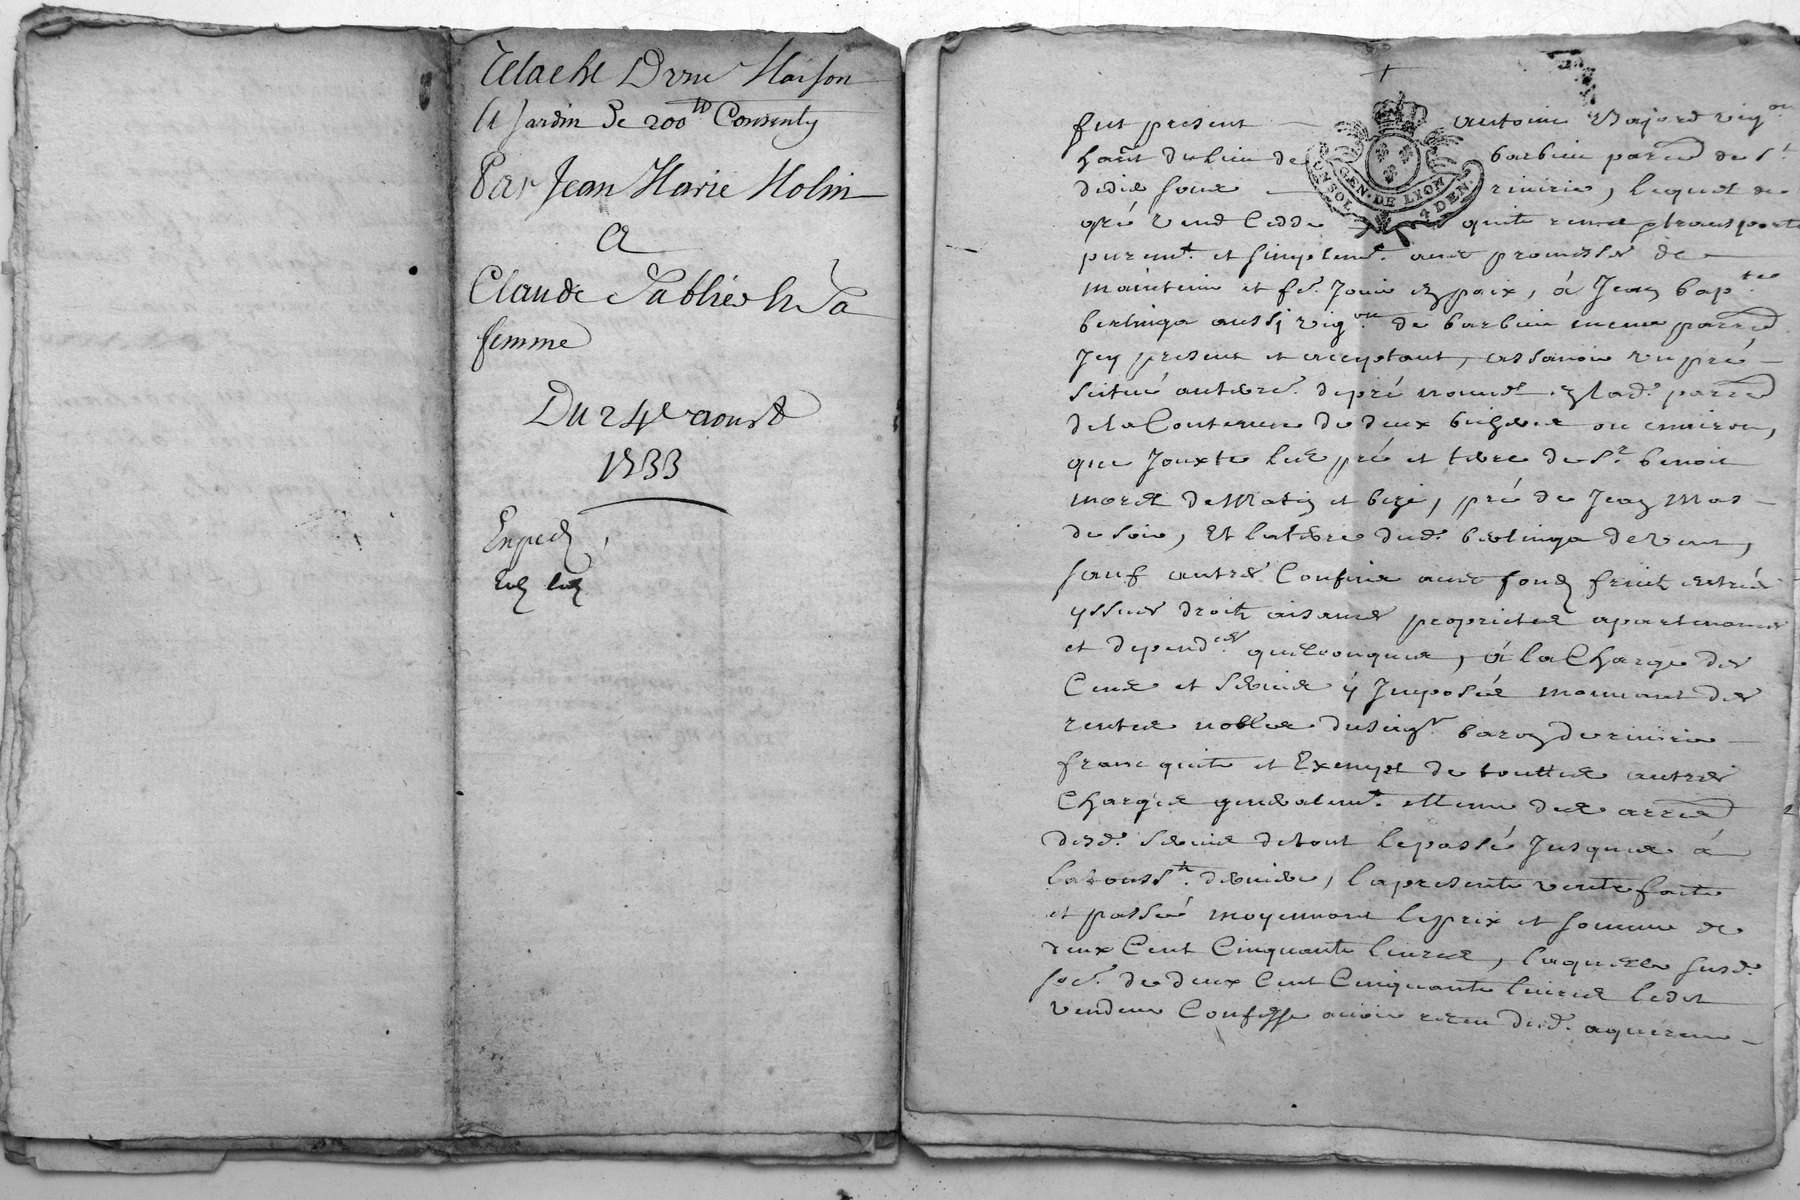 Relache D'une Maison
& Jardin de 200lt Consenty
Par Jean Marie Molin
a
Claude Sablier & Sa
femme
Du 24e aoust
1733
Exped
fut present antoine Bajard vig.on
ha͞nt du lieu de barbieu parr̃e de S.t
didie sous riuirie, lequel de
gré vend cedde quite remet & transporte
purem.t et simplem.t auec promesse de
maintenir et f.e Jouir en paix, á Jean bap.tee
berlinga aussi vig.on de barbieu meme parr̃e
Icy present et acceptant, assauoir un pré
Scitué au terr.e de pré nouuel en lad. parr̃e
de la Contenue de deux bicheré ou enuiron,
que Jouxte les pré et terre de S.r benoit
morel de Matin et bize, pré de Jean Mas
de Soir, Et la terre dud. berlinga de Vent,
sauf autres Confins auec fond fruit entrés
yssues droits aisances proprietes apartenances
et depend.ces quelconques, á la Charge des
Cens et seruis y Imposés mouuant des
rentes nobles du seig.r baron de riuirie
franc quitte et Exempt de touttes autres
Charges generalem.t et meme des arr̃es
desd. seruis de tout le passé Jusques á
la touss.t derniere, la presente vente faite
et passée moyennant le prix et somme de
deux Cent Cinquante liures, laquelle susd.
so.e de deux Cent Cinquante liures ledit
vendeur Confesse auoir receu dud. aquereur
GEN. DE LYON
UN SOL 4 DEN.